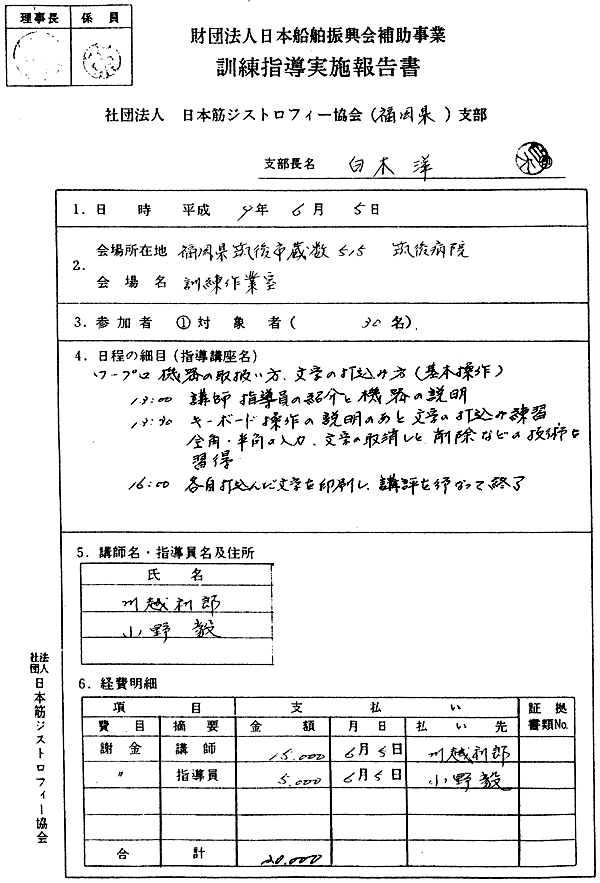 理事長 係員
財団法人日本船舶振興会補助事業
訓練指導実施報告書
社団法人 日本筋ジストロフィー協会(福岡県)支部
支部長名 白木 洋
1.日 時 平成 9年 6月 5日
2.会場所在地 福岡県筑後市蔵数515 筑後病院
会場名 訓練作業室
3.参加者 ①対象者( 30名).
4.日程の細目(指導講座名)
ワープロ機器の取扱い方、文字の打込み方(基本操作)
13:00 講師 指導員の紹介と機器の説明
13:30 キーボード操作の説明のあと文字の打込み練習
全角・半角の入力、文字の取消しと削除などの技術を
習得
16:00 各自打込んだ文字を印刷し、講評を行なって終了
5.講師名・指導員名及住所
氏 名
川越利郎
小野毅
6.経費明細
項 目 支 払 い 証拠書類No.
費目 摘要 金額 月日 払い先
謝金 講師 15.000 6月5日 川越利郎
〃 指導員 5.000 6月5日 小野毅
合 計 20,000
社団法人日本筋ジストロフィー協会